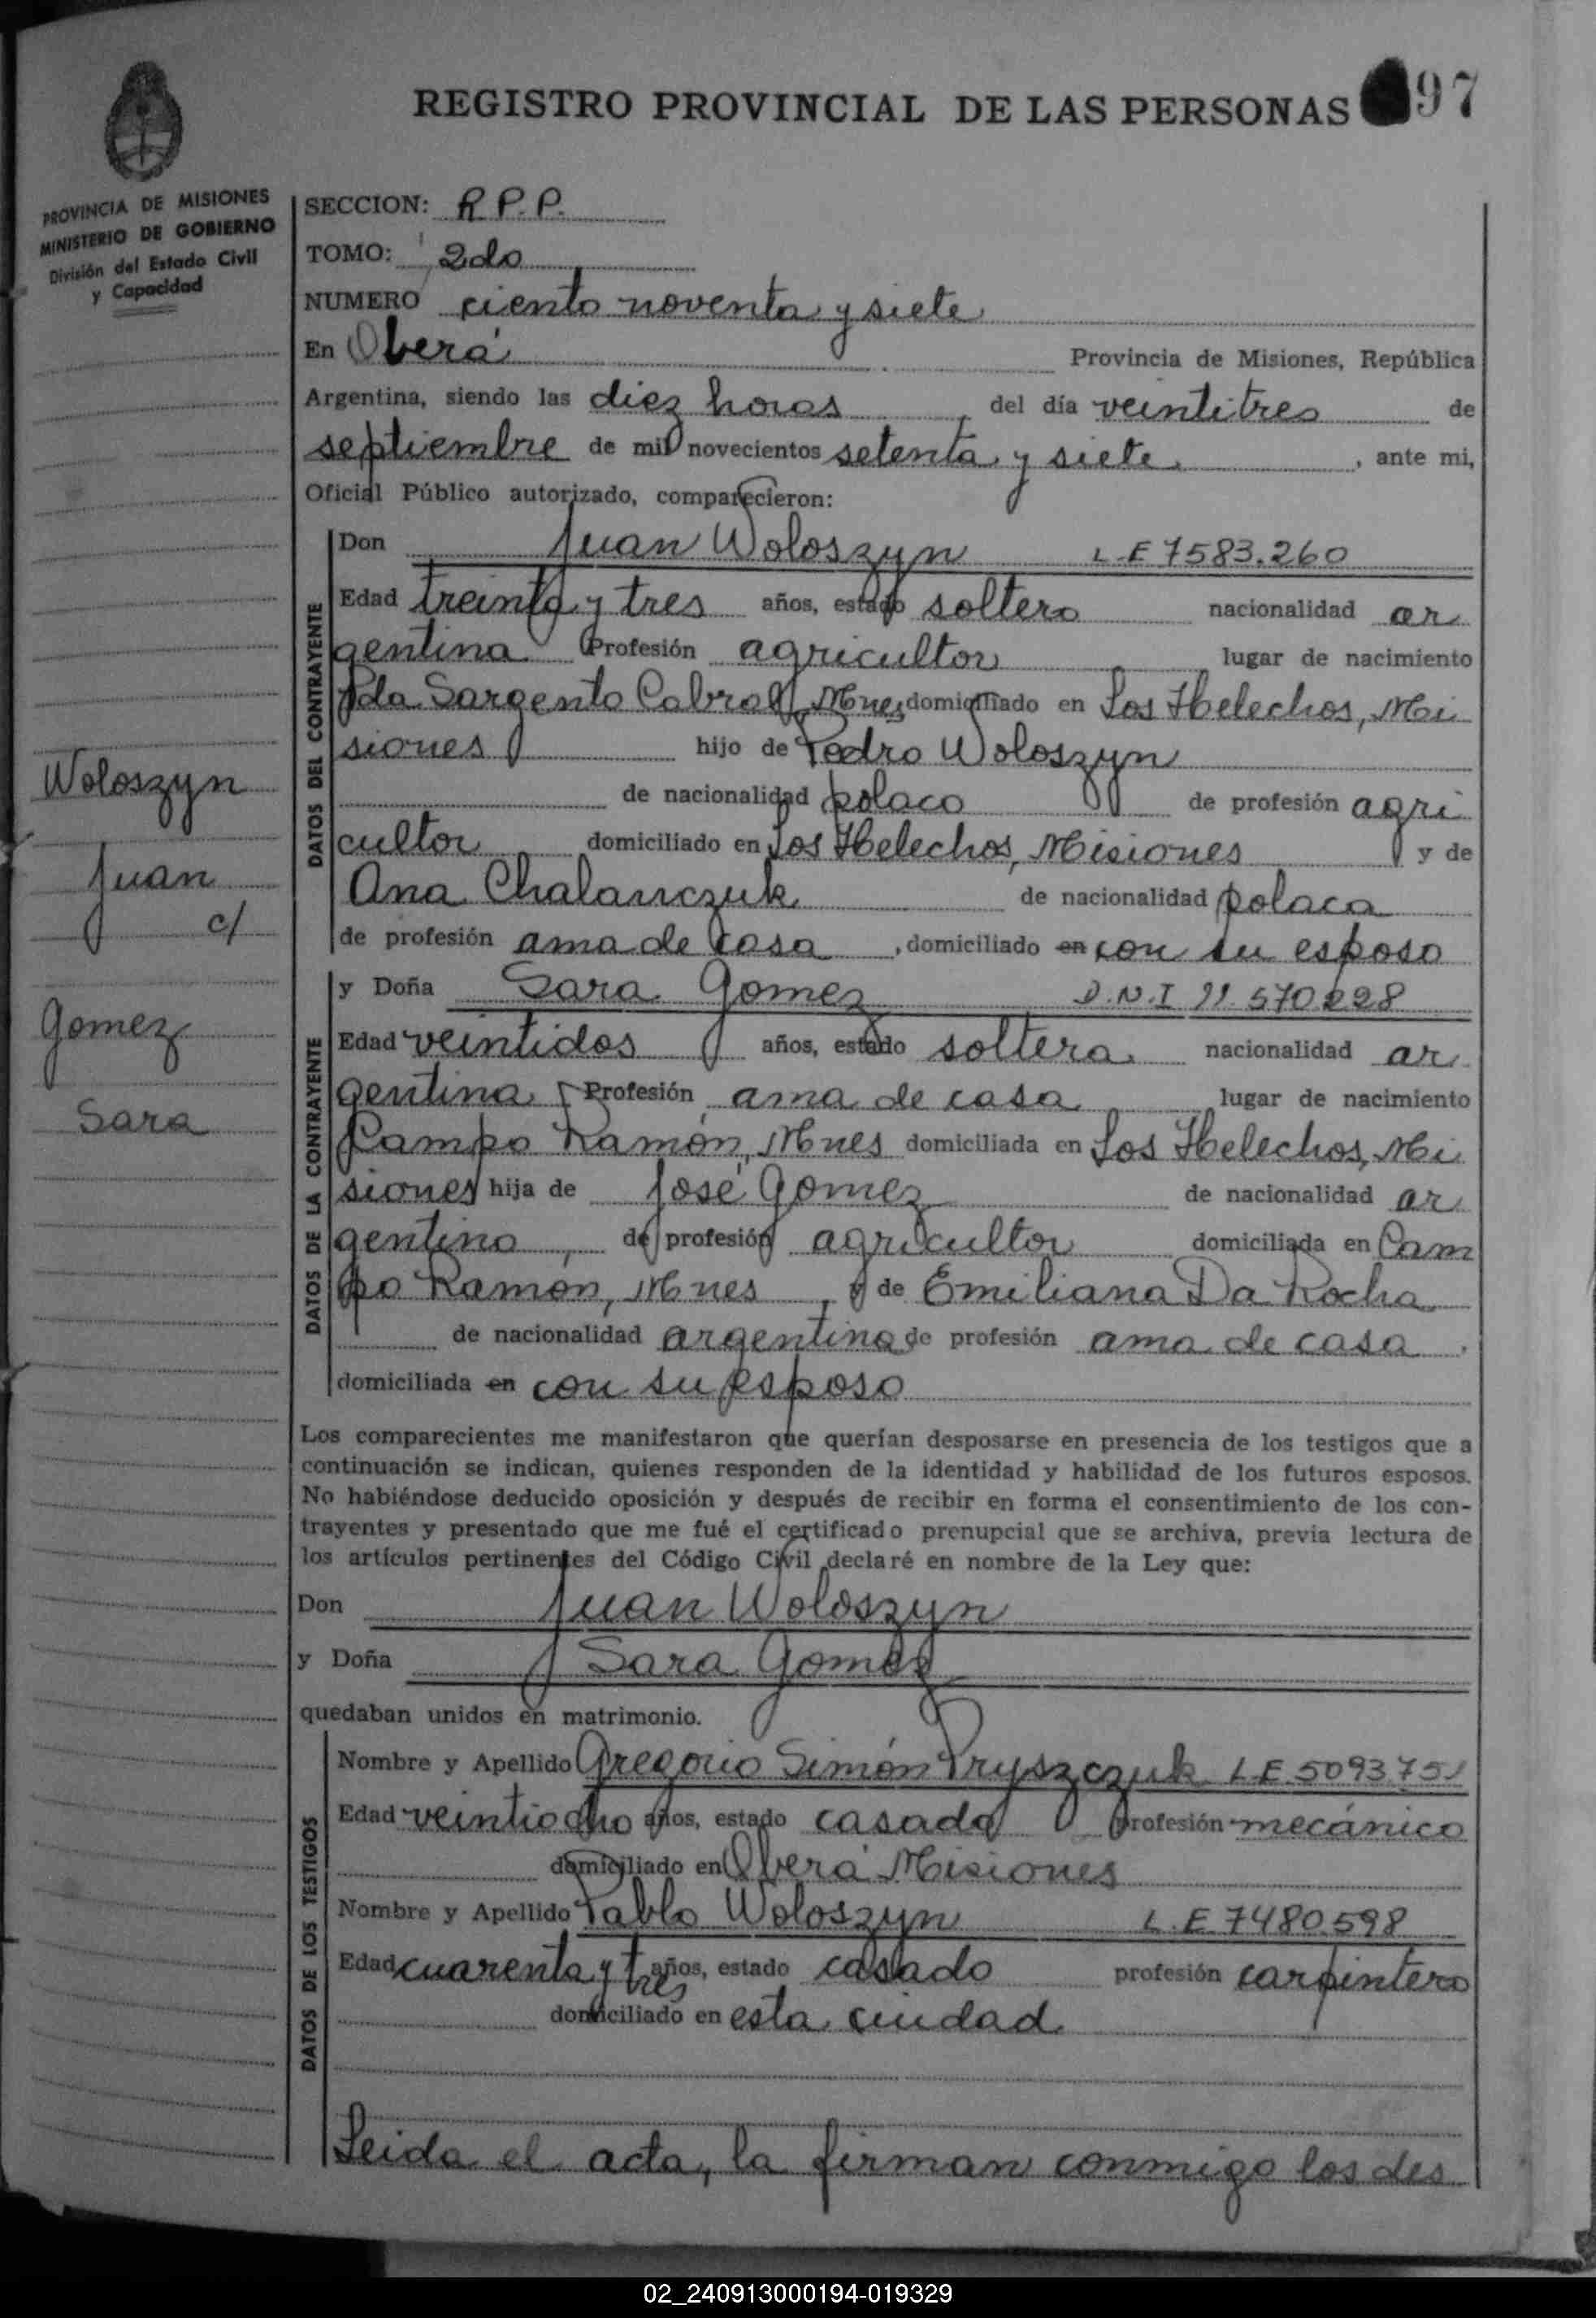 REGISTRO PROVINCIAL DE LAS PERSONAS 97
PROVINCIA DE MISIONES
MINISTERIO DE GOBIERNO
División del Estado Civil
y Capacidad
SECCION: R.P.P.
TOMO: 2do
NUMERO ciento noventa y siete
En Oberá Provincia de Misiones, República
Argentina, siendo las diez horas, del día veintitres de
septiembre de mil novecientos setenta y siete, ante mi,
Oficial Público autorizado, comparecieron:
DATOS DEL CONTRAYENTE
Don Juan Woloszyn L.E 7583.260
Edad treinta y tres años, estado soltero nacionalidad ar
gentina Profesión agricultor lugar de nacimiento
Pda Sargento Cabral, Mnes, domiciliado en Los Helechos, Mi
siones hijo de Pedro Woloszyn
de nacionalidad polaco de profesión agri
cultor domiciliado en Los Helechos, Misiones y de
Ana Chalanczuk de nacionalidad polaca
de profesión ama de casa, domiciliado en con su esposo
Woloszyn
Juan
c/
Gomez
Sara
DATOS DE LA CONTRAYENTE
y Doña Sara Gomez D.N.I 11.570.228
Edad veintidos años, estado soltera nacionalidad ar
gentina Profesión ama de casa lugar de nacimiento
Campo Ramón, Mnes domiciliada en Los Helechos, Mi
siones hija de José Gomez de nacionalidad ar
gentino, de profesión agricultor domiciliada en Cam
po Ramón, Mnes, y de Emiliana Da Rocha
de nacionalidad argentina de profesión ama de casa,
domiciliada en con su esposo
Los comparecientes me manifestaron que querían desposarse en presencia de los testigos que a
continuación se indican, quienes responden de la identidad y habilidad de los futuros esposos.
No habiéndose deducido oposición y después de recibir en forma el consentimiento de los con-
trayentes y presentado que me fué el certificado prenupcial que se archiva, previa lectura de
los artículos pertinentes del Código Civil declaré en nombre de la Ley que:
Don Juan Woloszyn
y Doña Sara Gomez
quedaban unidos en matrimonio.
DATOS DE LOS TESTIGOS
Nombre y Apellido Gregorio Simón Pryszczuk L.E 5093751
Edad veintiocho años, estado casado profesión mecánico
domiciliado en Oberá Misiones
Nombre y Apellido Pablo Woloszyn L.E 7480.598
Edad cuarenta y tres años, estado casado profesión carpintero
domiciliado en esta ciudad
Leida el acta, la firman conmigo los des
02_240913000194-019329